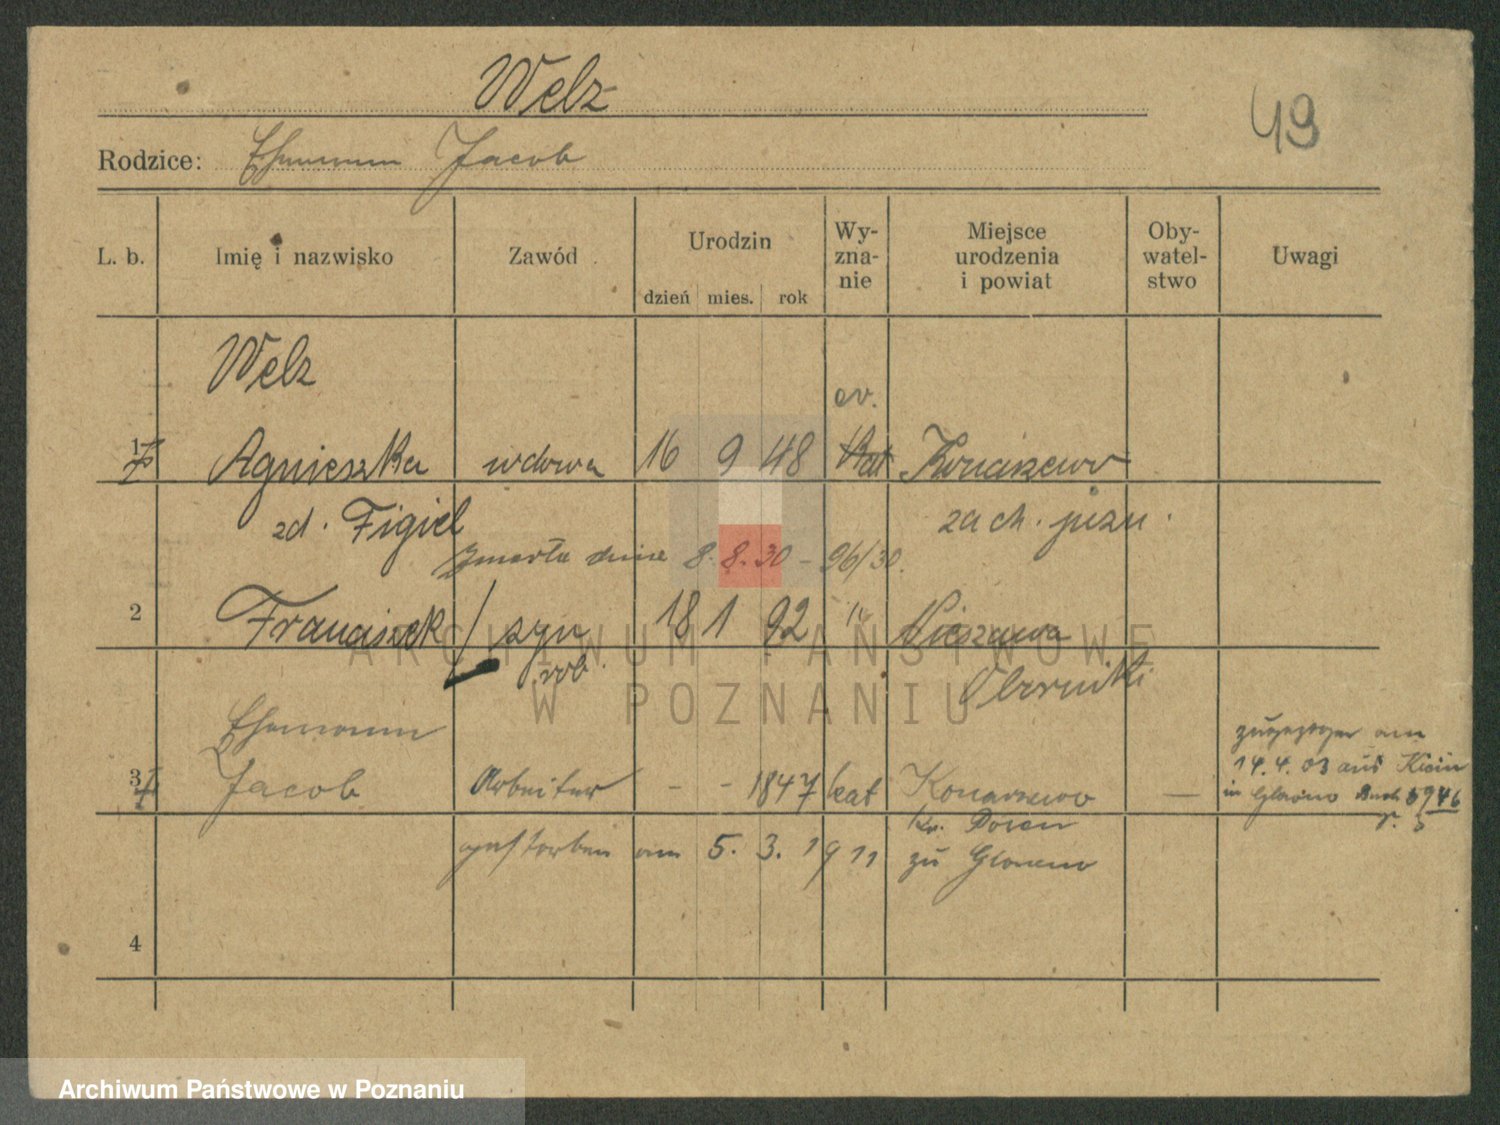 Welz
49
Rodzice: Ehemann Jacob
L. b. Imię i nazwisko Zawód Urodzin Wyznanie Miejsce urodzenia i powiat Obywatelstwo Uwagi
dzień mies. rok
Welz
ev.
1 Agnieszka wdowa 16 9 48 kat Konarzewo
zd. Figiel zach. pozn.
zmarła dnia 8.8.30 - 96/30.
2 Franciszek / syn 18 1 92 " Nieszawa
rob. Oborniki
ARCHIWUM PAŃSTWOWE
W POZNANIU
Ehemann zugezogen am
14.4.03 aus Kicin
3 Jacob Arbeiter - - 1847 kat Konarzewo — in Glowno Buch
Kr. Posen
gestorben am 5. 3. 1911 zu Glowno
4
Archiwum Państwowe w Poznaniu